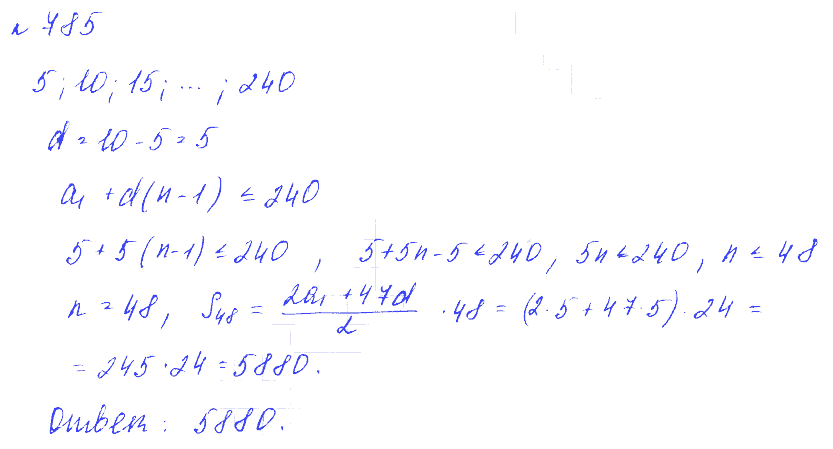 № 785
5; 10; 15; ... ; 240
d = 10 - 5 = 5
a₁ + d(n-1) ≤ 240
5 + 5(n-1) ≤ 240 , 5+5n-5 ≤ 240, 5n ≤ 240, n ≤ 48
n = 48, S₄₈ = (2a₁ + 47d)/2 · 48 = (2·5 + 47·5) · 24 =
= 245 · 24 = 5880.
Ответ: 5880.